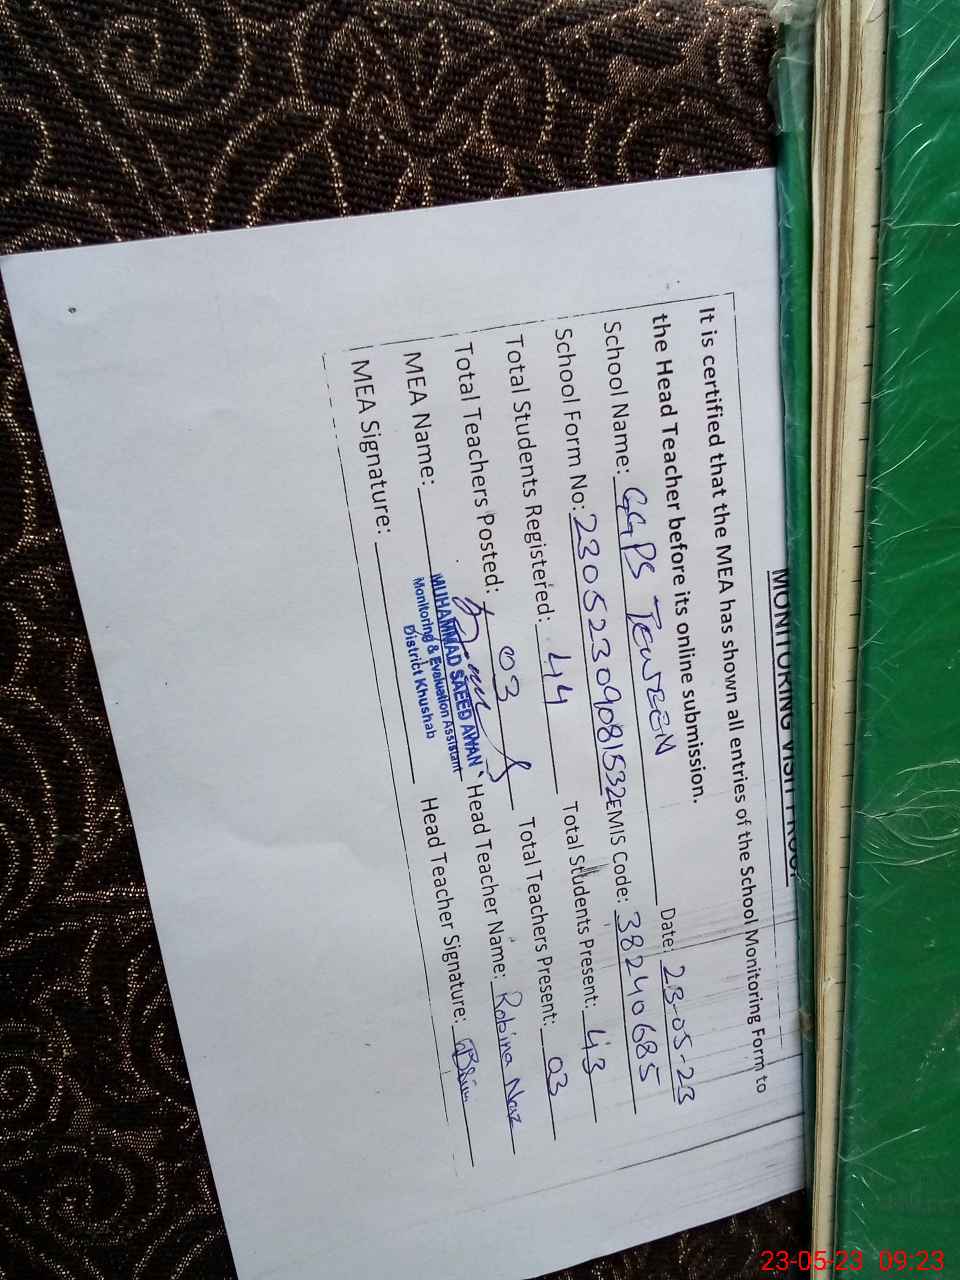 MONITORING VISIT PROOF
It is certified that the MEA has shown all entries of the School Monitoring Form to
the Head Teacher before its online submission.
School Name: GGPS TEWREN Date: 23-05-23
School Form No: 23052309081532 EMIS Code: 38240685
Total Students Registered: 44 Total Students Present: 43
Total Teachers Posted: 03 Total Teachers Present: 03
MEA Name: Head Teacher Name: Robina Naz
MUHAMMAD SAEED AWAN
Monitoring & Evaluation Assistant
District Khushab
MEA Signature: Head Teacher Signature:
23-05-23 09:23